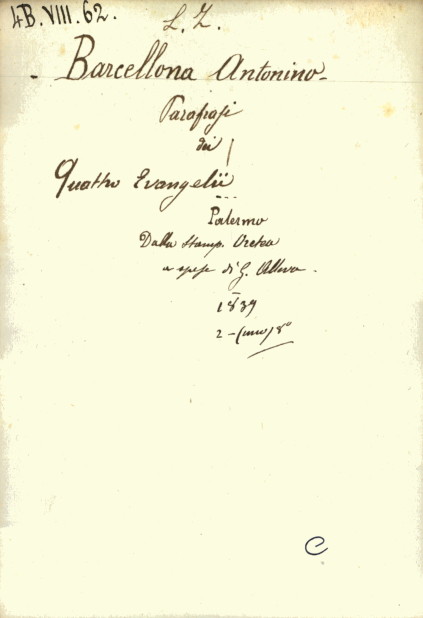 4B.VIII.62.
L. Z.
Barcellona Antonino
Parafrasi
dei
Quattro Evangelii
Palermo
Dalla Stamp. Oretea
a spese di G.
1839
2 - (uno) 8°
C